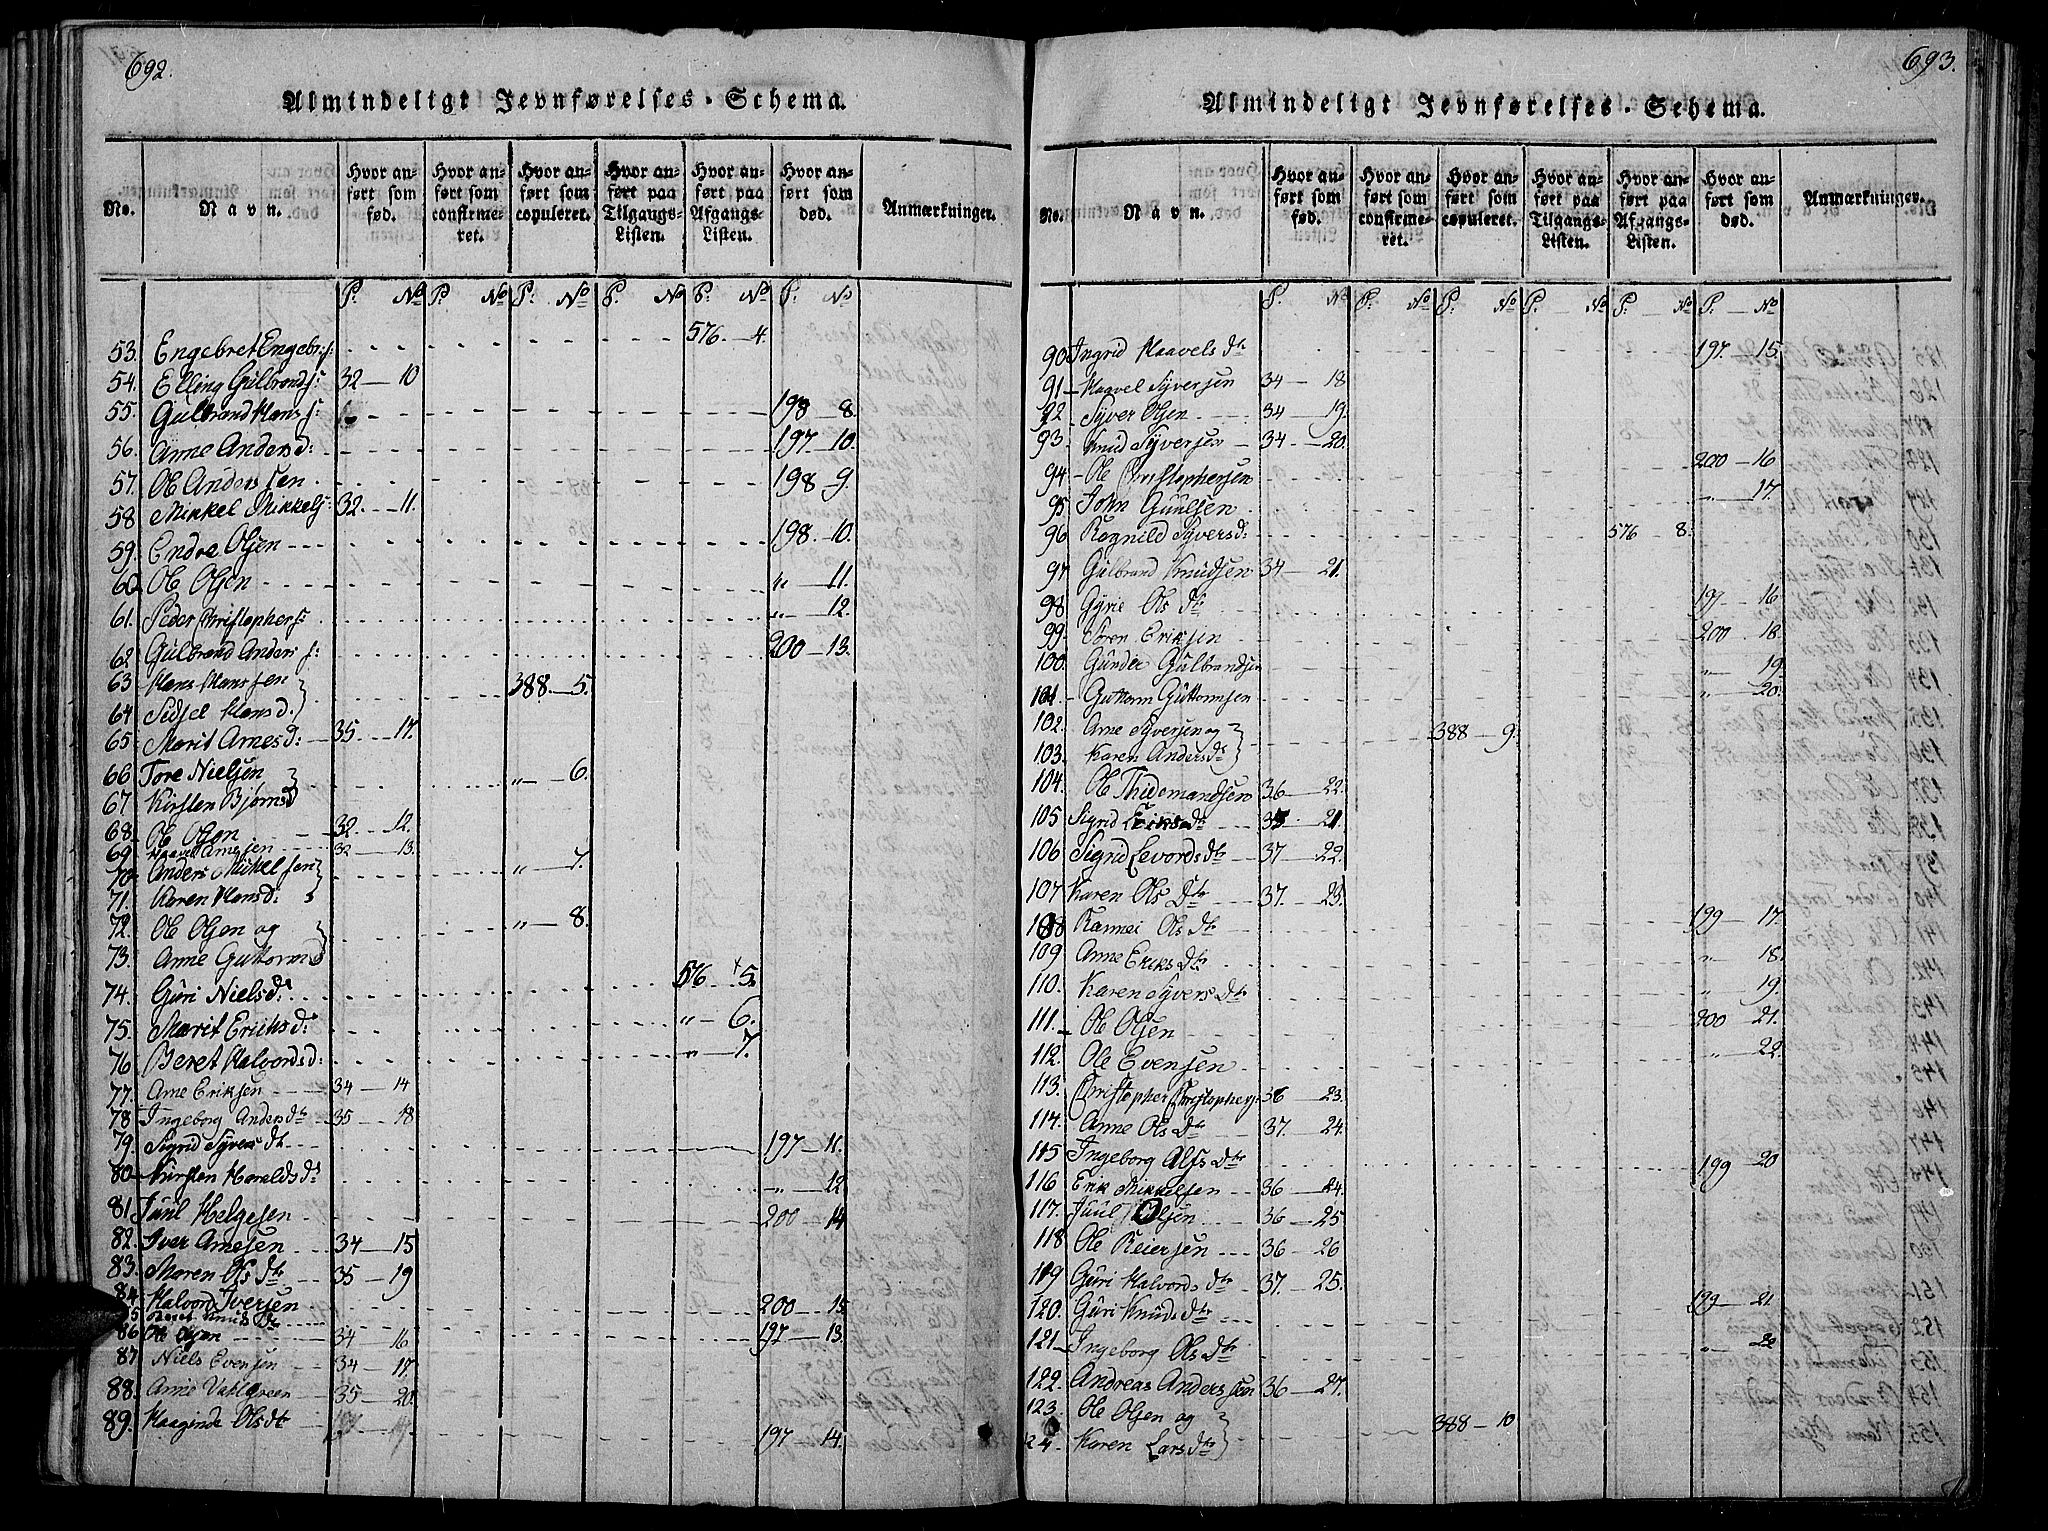 692.
Almindeligt Jevnførelses-Schema.
No.
Navn.
Hvor anført som fød.
Hvor anført som confirmeret.
Hvor anført som copuleret.
Hvor anført paa Tilgangs-Listen.
Hvor anført paa Afgangs-Listen.
Hvor anført som død.
Anmærkninger.
P. No P. No P. No P. No P. No P. No
53. Engebret Engebr.s: 576 4.
54. Elling Gulbrands: 32 10
55. Gulbrand Hans s: 198 8.
56. Anne Anders d: 197 10.
57. Ole Anders sen 198 9.
58 Mikkel Mikkels: 32. 11.
59. Endre Olsen 198. 10.
60 Ole Olsen " 11.
61. Peder Christophers: " 12.
62 Gulbrand Anders s: 200 13.
63 Hans Hans sen } 388. 5.
64 Sidsel Hans d. }
65 Marit Arnes d: 35 17.
66 Tore Nielsen } " 6.
67 Kirsten Bjørnsd }
68 Ole Olsen 32 12.
69 Haavel Arnesen 32 13.
70 Anders Mikkel sen } " 7.
71. Karen Hans d: }
72. Ole Olsen og } " 8.
73. Anne Guttormsd }
74. Guri Niels d: 576 5.
75. Marit Eriks d: " 6.
76 Beret Halvords d: " 7.
77. Arne Eriksen 34 14
78 Ingeborg Anders dr 35 18
79. Sigrid Syvers dr 197 11.
80 Kirsten Haralds dr " 12
81 Juul Helgesen 200 14
82. Iver Arnesen 34 15
83. Maren Ols dtr 35 19
84 Halvord Iversen 200 15.
85 Beret Knuds Dr 197 13.
86 Ole Olsen 34 16
87 Niels Evensen 34 17.
88. Anne Vahlgreen 35 20.
89. Haaginde Olsdtr 197 14.
693.
Almindeligt Jevnførelses-Schema.
No.
Navn.
Hvor anført som fød.
Hvor anført som confirmeret.
Hvor anført som copuleret.
Hvor anført paa Tilgangs-Listen.
Hvor anført paa Afgangs-Listen.
Hvor anført som død.
Anmærkninger.
P. No P. No P. No P. No P. No P. No
90 Ingrid Haavels dtr 197 15.
91 Haavel Syversen 34 18
92 Syver Olsen 34 19.
93. Knud Syversen 34 20.
94 Ole Christophersen 200 16
95 John Guulsen " 17.
96 Ragnild Syvers d: 576 8.
97 Gulbrand Knudsen 34 21.
98 Gyrie Ols dtr 197 16
99. Søren Eriksen 200 18.
100. Gunder Gulbrandsen " 19.
101. Guttorm Guttormsen " 20.
102. Arne Syversen og } 388 9.
103. Karen Anders dr }
104. Ole Thidemandsen 36 22.
105 Sigrid Eriks dtr 37 21
106 Sigrid Levords dtr 37 22.
107 Karen Ols Dtr 37. 23.
108 Rannei Ols dtr 199 17.
109 Anne Eriks dtr " 18.
110. Karen Syvers dtr " 19.
111. Ole Olsen 200 21.
112. Ole Evensen " 22.
113. Christopher Christophers: 36 23.
114. Anne Ols Dtr 37. 24.
115 Ingeborg Alfs dtr 199 20
116 Erik Mikkelsen 36 24.
117. Juul Olsen 36 25
118 Ole Reiersen 36 26
119 Guri Halvords dtr 37. 25.
120. Guri Knuds dtr 199 21.
121. Ingeborg Ols dtr " 22
122. Andreas Anders sen 36 27.
123. Ole Olsen og } 388 10
24. Karen Lars dtr }